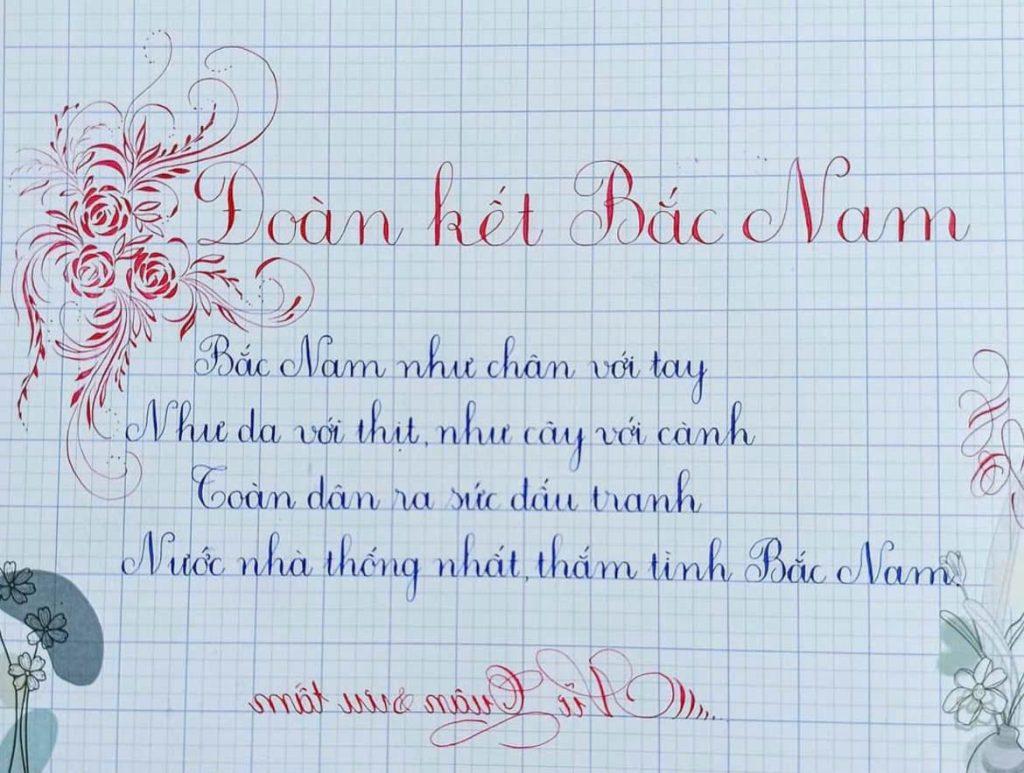 Đoàn kết Bắc Nam
Bắc Nam như chân với tay
Như da với thịt, như cây với cành
Toàn dân ra sức đấu tranh
Nước nhà thống nhất, thắm tình Bắc Nam.
Vũ Quân sưu tầm